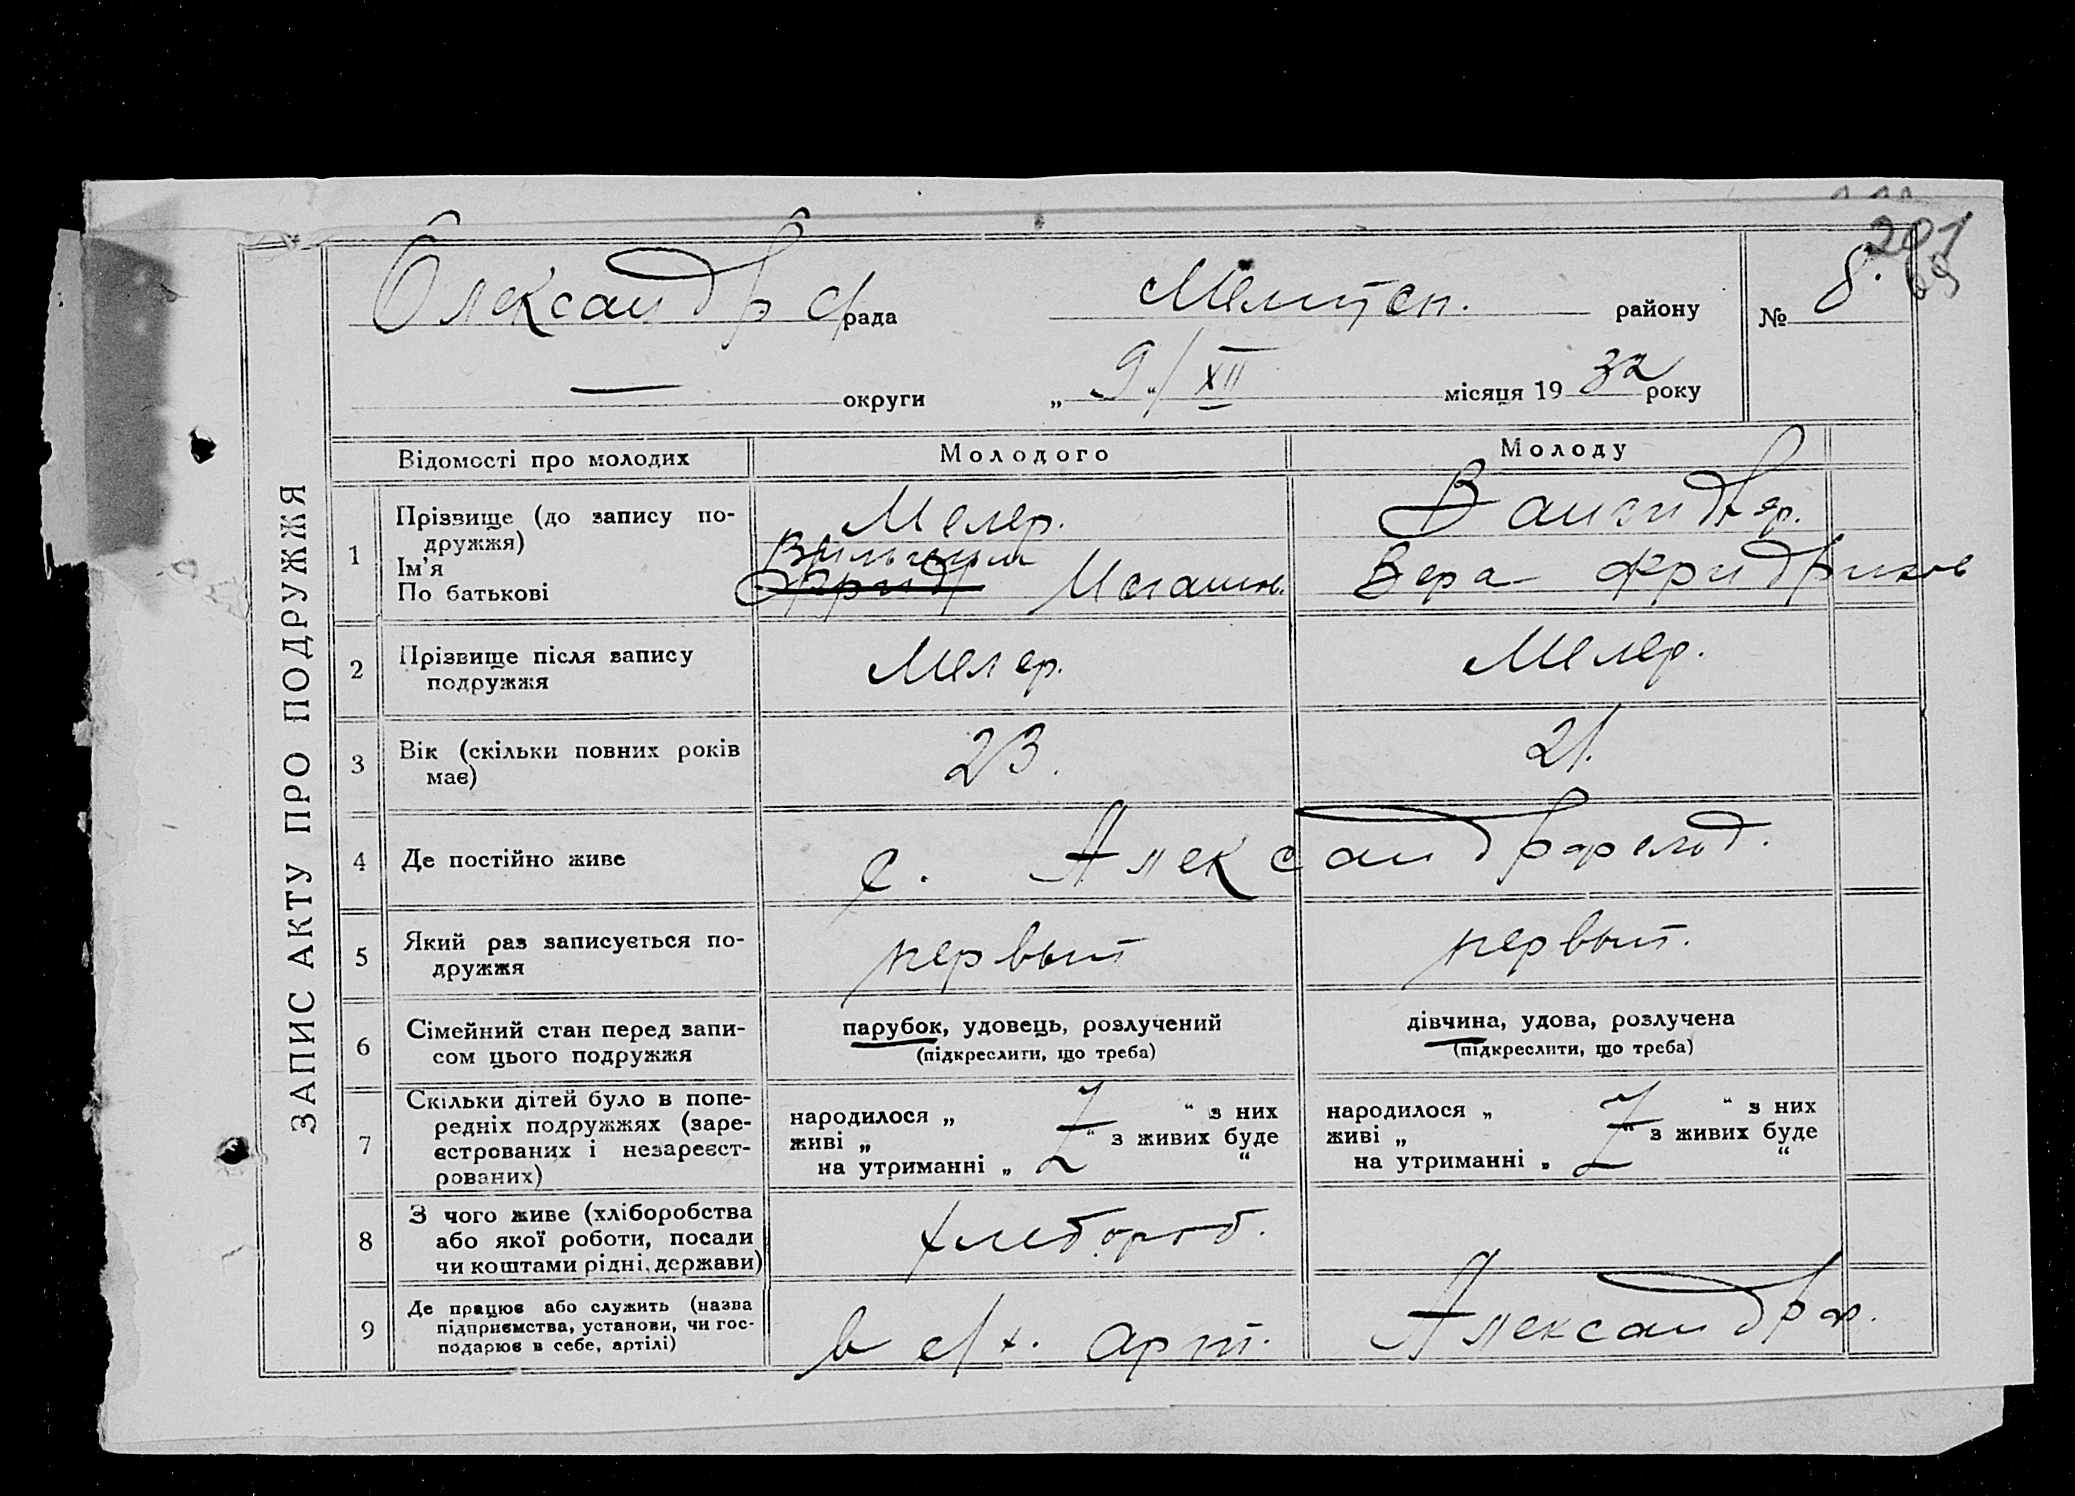 ЗАПИС АКТУ ПРО ПОДРУЖЖЯ
201
69
Олександр с/рада Мелитоп. району № 8.
— округи „ 9 “ / XII місяця 19 32 року
Відомості про молодих Молодого Молоду
1 Прізвище (до запису по-
дружжя)
Ім’я
По батькові
Мелер.
Вильгельм
Фридр
Вера Фридриков
2 Прізвище після запису
подружжя
Мелер. Мелер.
3 Вік (скільки повних років
має)
23. 21.
4 Де постійно живе с. Александрфельд.
5 Який раз записується по-
дружжя
первый первый.
6 Сімейний стан перед запи-
сом цього подружжя
парубок, удовець, розлучений
(підкреслити, що треба)
дівчина, удова, розлучена
(підкреслити, що треба)
7 Скільки дітей було в попе-
редніх подружжях (заре-
єстрованих і незареєст-
рованих)
народилося „ “ з них
живі „ “ з живих буде
на утриманні „ “
народилося „ “ з них
живі „ “ з живих буде
на утриманні „ “
8 З чого живе (хліборобства
або якої роботи, посади
чи коштами рідні, держави)
хлебороб.
9 Де працює або служить (назва
підприємства, установи, чи гос-
подарює в себе, артілі)
в с/х. арт. Александрф.